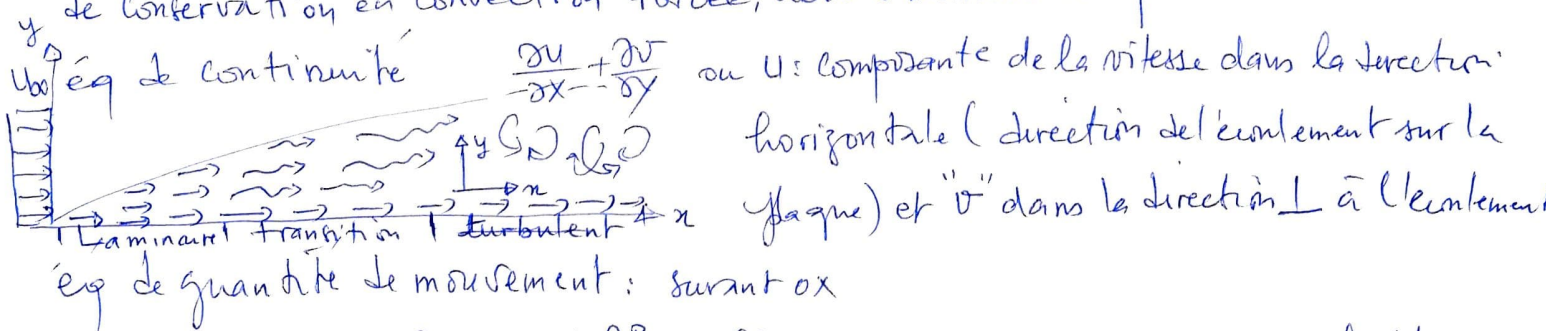 y de conservation en convection forcée,
U∞ éq de continuité ∂u/∂x + ∂v/∂y ou U: composante de la vitesse dans la direction
horizontale ( direction de l'écoulement sur la
y
x
plaque) et "v" dans la direction ⊥ à l'écoulement
x
Laminaire transition turbulent
éq de quantité de mouvement : suivant ox